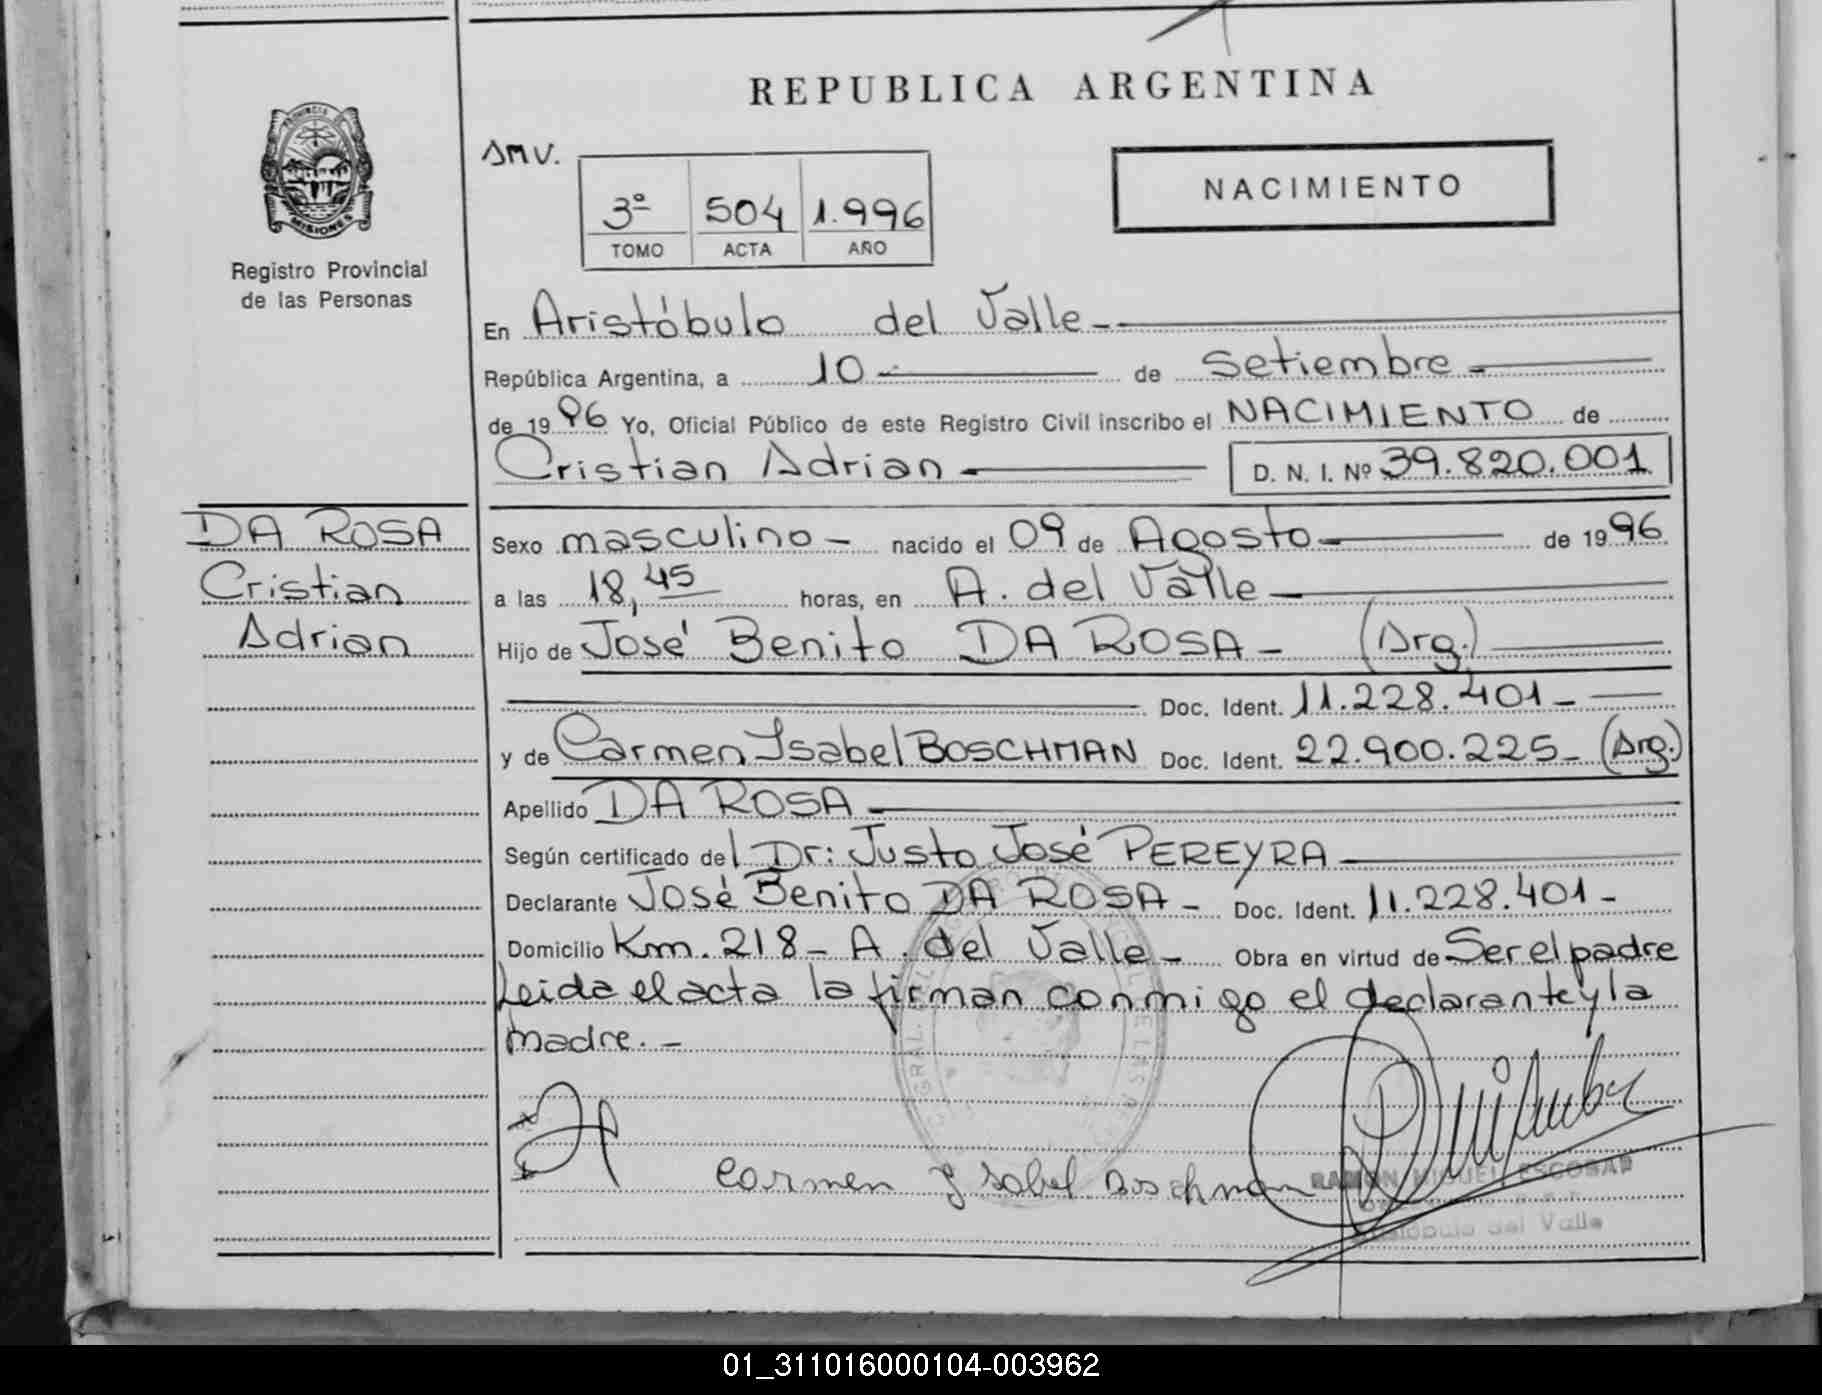 REPUBLICA ARGENTINA
PROVINCIA
MISIONES
Registro Provincial
de las Personas
SMV.
3º 504 1.996
TOMO ACTA AÑO
NACIMIENTO
En Aristóbulo del Valle -
República Argentina, a 10 de Setiembre -
de 1996 Yo, Oficial Público de este Registro Civil inscribo el NACIMIENTO de
Cristian Adrian - D. N. I. Nº 39.820.001
DA ROSA
Cristian
Adrian
Sexo masculino - nacido el 09 de Agosto - de 1996
a las 18,45 horas, en A. del Valle -
Hijo de José Benito DA ROSA - (Arg.)
Doc. Ident. 11.228.401 -
y de Carmen Isabel BOSCHMAN Doc. Ident. 22.900.225 - (Arg.)
Apellido DA ROSA -
Según certificado del Dr: Justo José PEREYRA -
Declarante José Benito DA ROSA - Doc. Ident. 11.228.401 -
Domicilio Km. 218 - A. del Valle - Obra en virtud de Ser el padre
Leida el acta la firman conmigo el declarante y la
madre. -
Carmen Ysabel Boschman
RAMON MIGUEL ESCOBAR
del Valle
01_311016000104-003962